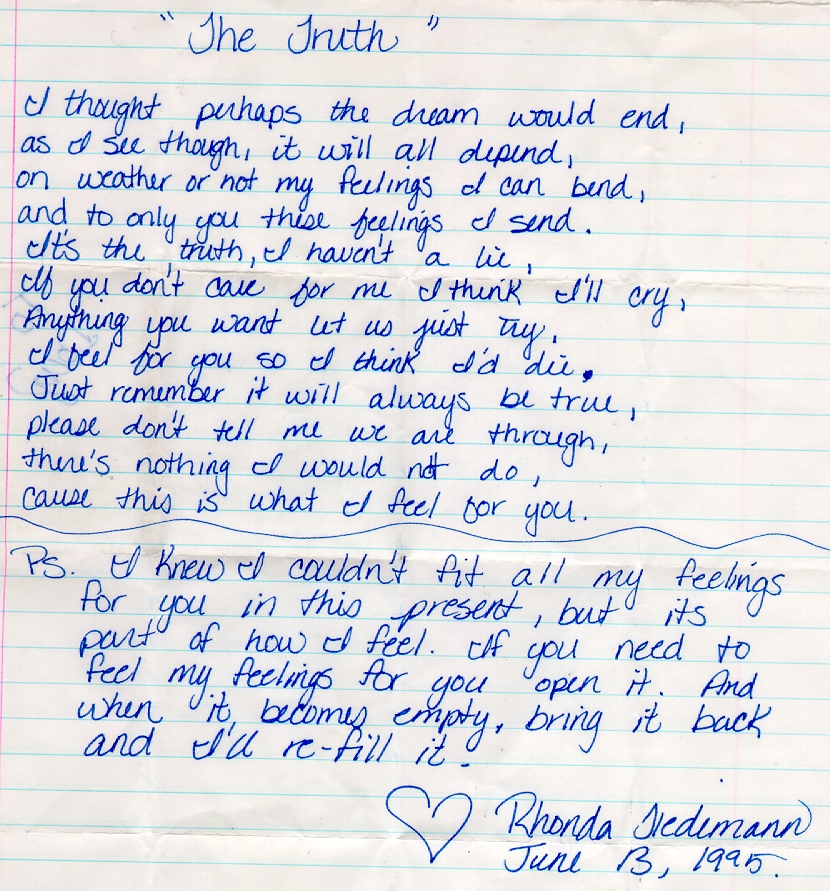 "The Truth"
I thought perhaps the dream would end,
as I see though, it will all depend,
on weather or not my feelings I can bend,
and to only you these feelings I send.
It's the truth, I haven't a lie,
If you don't care for me I think I'll cry,
Anything you want let us just try,
I feel for you so I think I'd die.
Just remember it will always be true,
please don't tell me we are through,
there's nothing I would not do,
cause this is what I feel for you.
Ps. I knew I couldn't fit all my feelings
for you in this present, but its
part of how I feel. If you need to
feel my feelings for you open it. And
when it becomes empty, bring it back
and I'll re-fill it.
Rhonda Tiedemann
June 13, 1995.